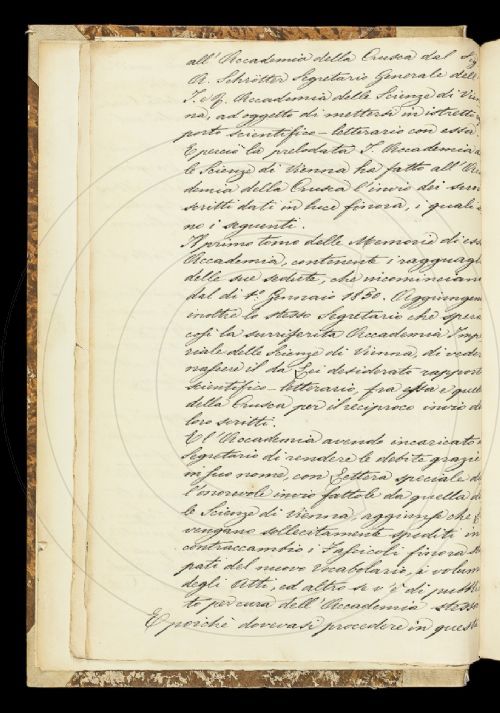 all' Accademia della Crusca dal Sig
A. Schrötter Segretario Generale dell
I. e R. Accademia delle Scienze di Vien
na, ad oggetto di mettersi in istretti
porto scientifico-letterario con essa.
E perciò la prelodata I. Accademia
le Scienze di Vienna ha fatto all' Acc
demia della Crusca l'invio dei suoi
scritti dati in luce finora, i quali s
no i seguenti.
Il primo tomo delle Memorie di ess
Accademia, contenente i ragguagli
delle sue sedute, che incominciano
dal di 1º Gennaio 1850. Aggiungen
inoltre lo stesso Segretario che spera
così la surriferita Accademia Impe
riale delle Scienze di Vienna, di veder
nascere il da Lei desiderato rapport
scientifico-letterario, fra essa e quell
della Crusca per il reciproco invio de
loro scritti.
E l'Accademia avendo incaricato
Segretario di rendere le debite grazi
in suo nome, con Lettera speciale de
l'onorevole invio fattole da quella d
le Scienze di Vienna, aggiunse che
vengano sollecitamente spediti in
contraccambio i Fascicoli finora St
pati del nuovo Vocabolario, i volum
degli Atti, ed altro se v'è di pubbli
to per cura dell' Accademia stessa
E poichè dovevasi procedere in questa